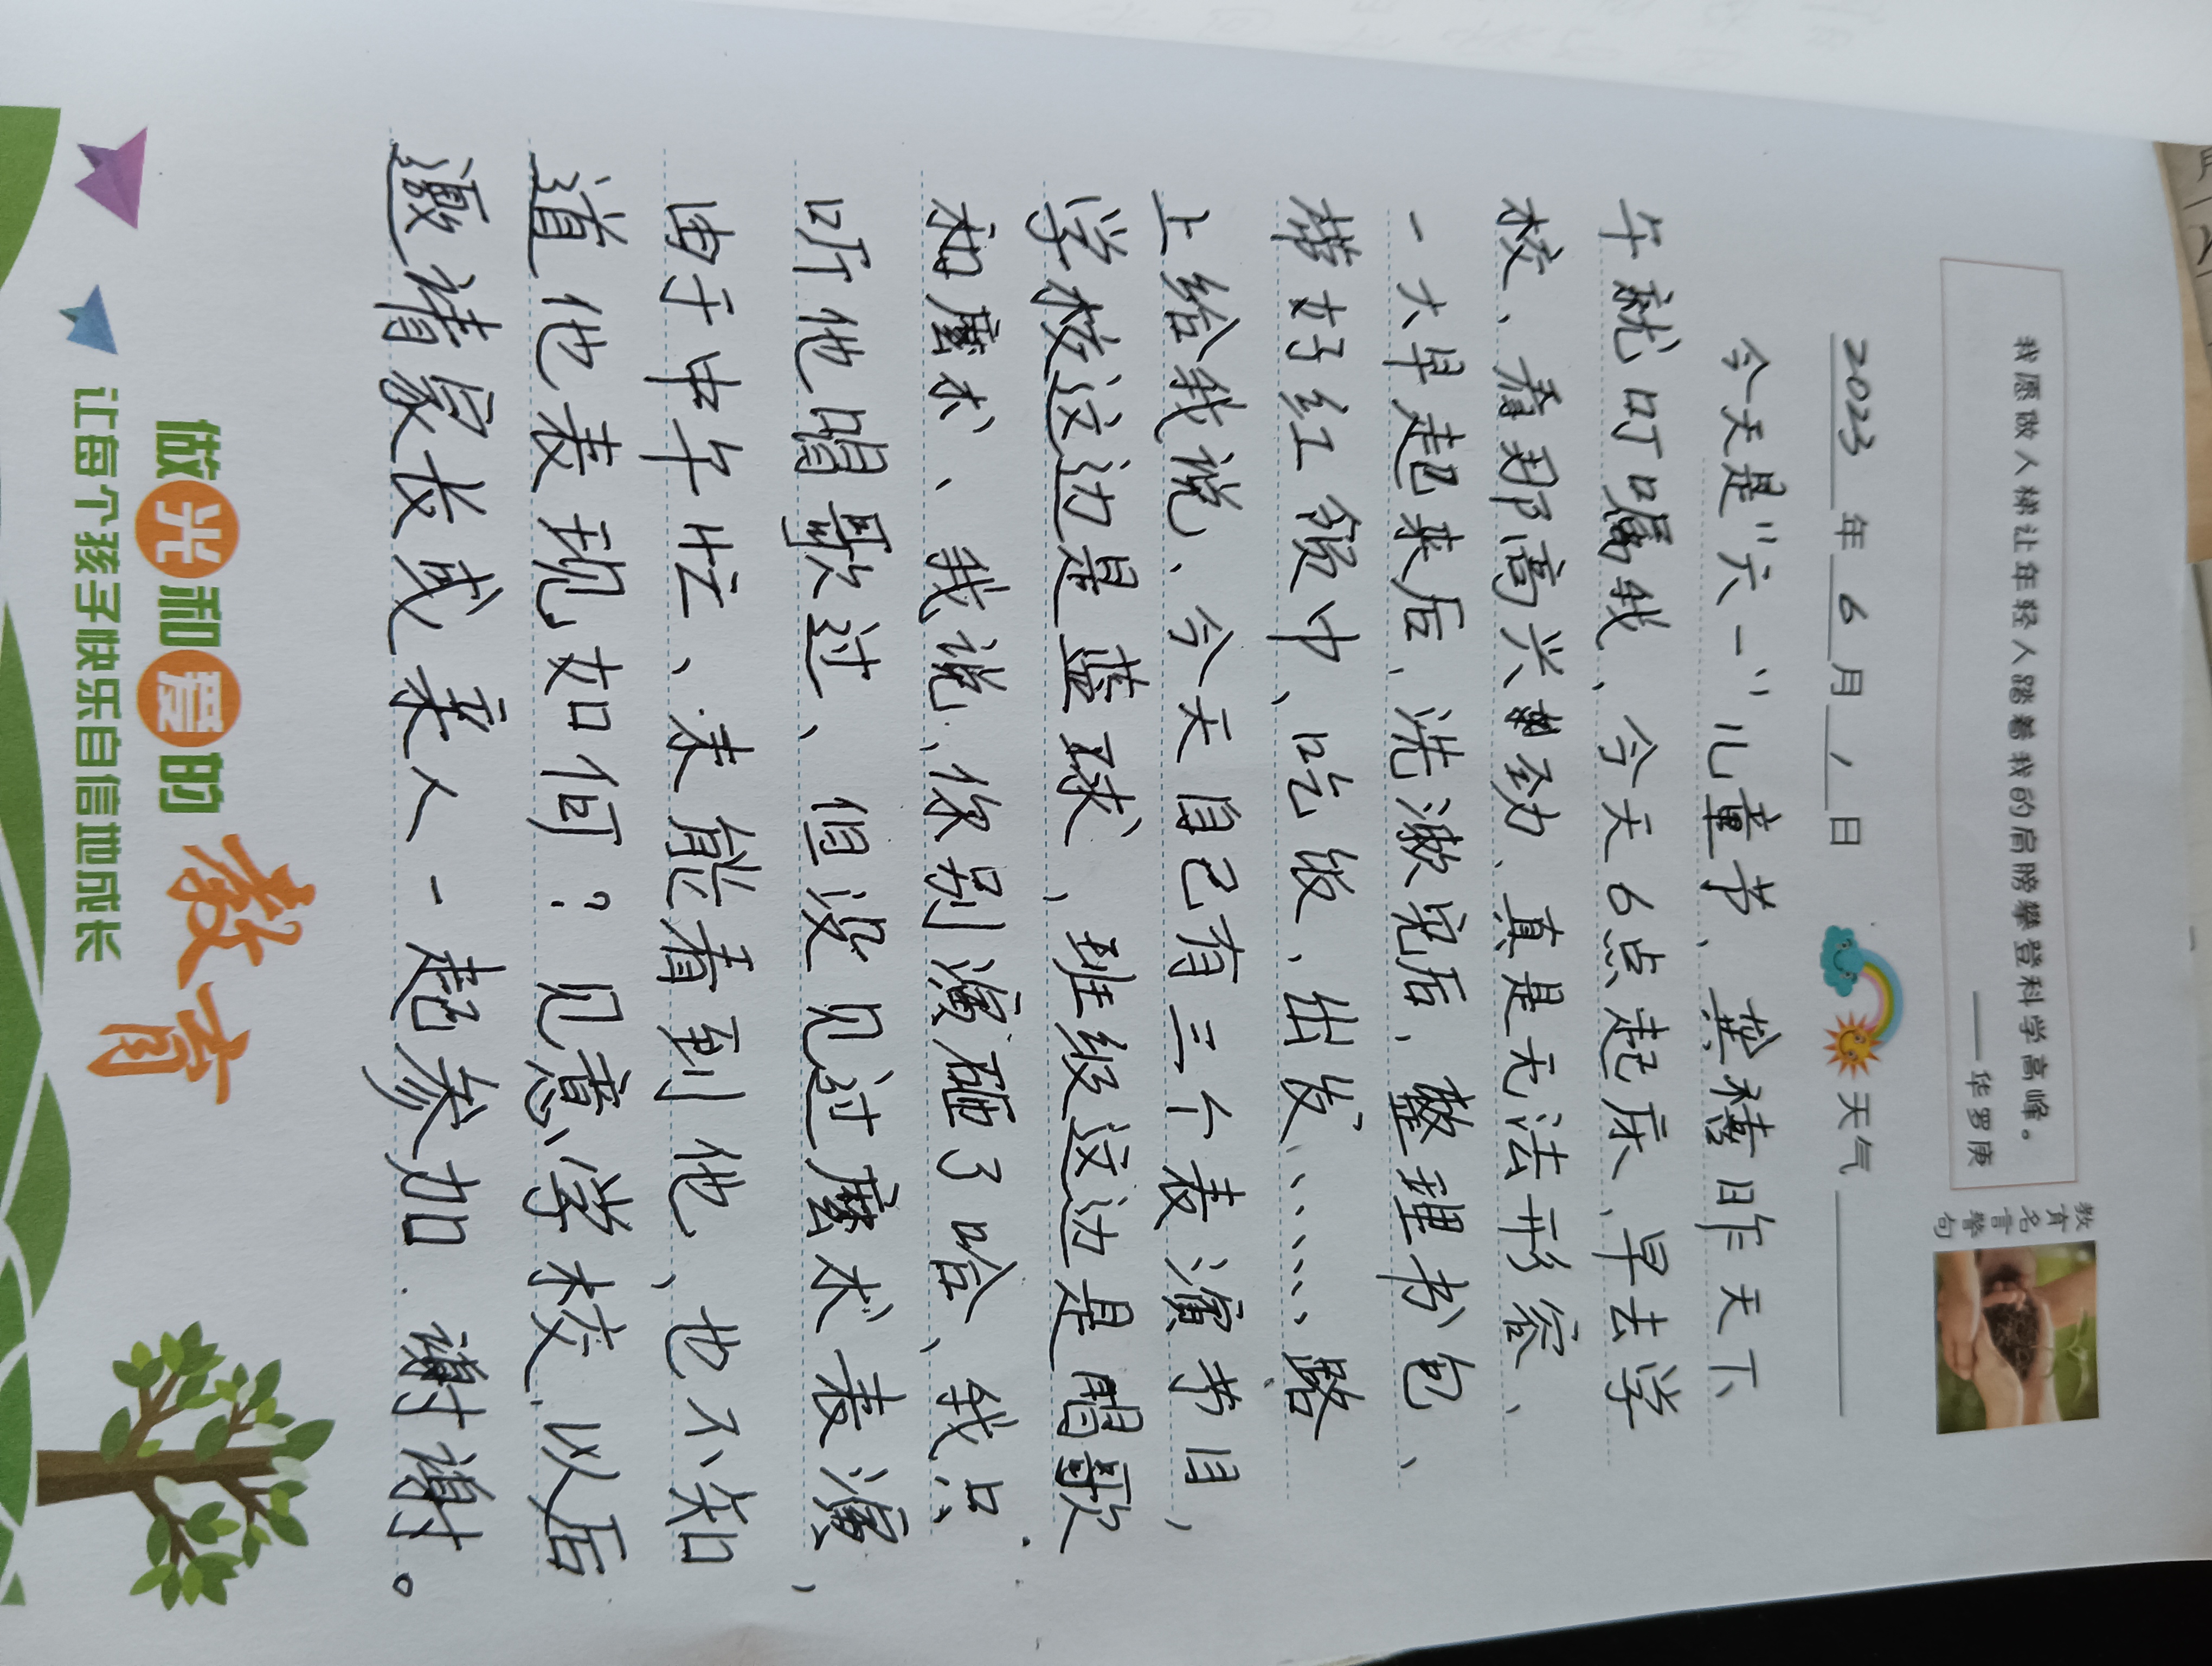 我愿做人梯让年轻人踏着我的肩膀攀登科学高峰。
——华罗庚
教育名言警句
2023年6月1日 天气
今天是"六一"儿童节、龚禧昨天下、
午就叮嘱我、今天6点起床、早去学
校、看那高兴劲、真是无法形容、
一大早起来后、洗漱完后、整理书包、
带好红领巾、吃饭、出发、、、、、、路
上给我说、今天自己有三个表演节目，
学校这边是蓝球、班级这边是唱歌
和魔术、我说、你别演砸了哈、我只
听他唱歌过、但没见过魔术表演，
由于中午忙、未能看到他、也不知
道他表现如何？见意学校、以后
邀请家长或亲人一起参加、谢谢。
做光和爱的教育
让每个孩子快乐自信地成长